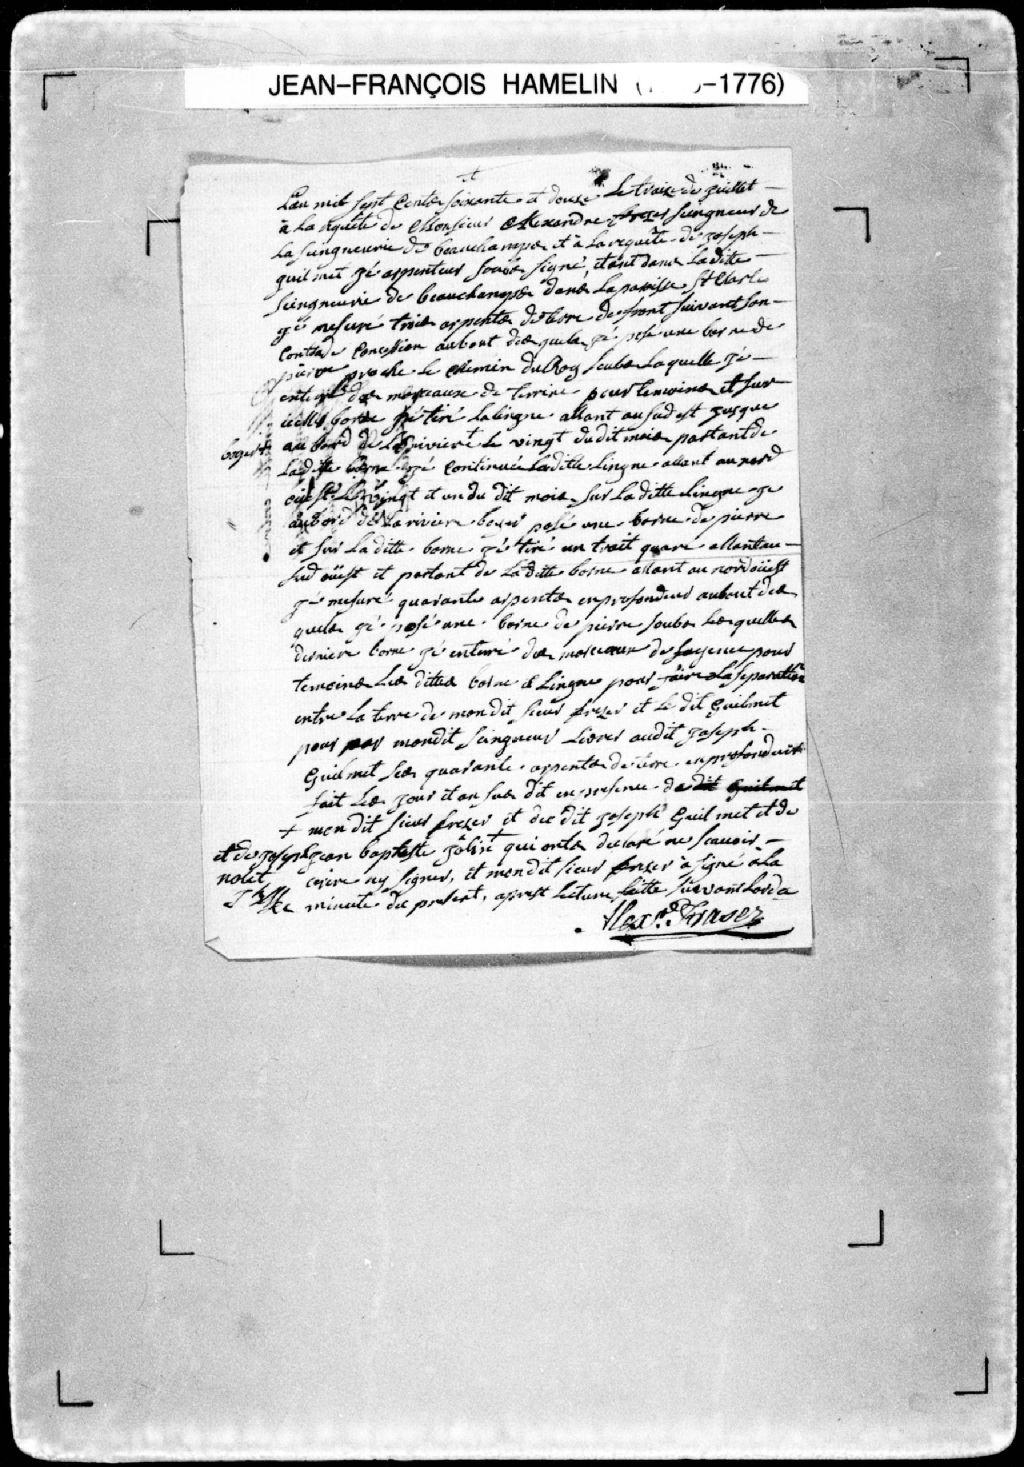 JEAN-FRANÇOIS HAMELIN ( -1776)
Lan mil sept Cents soixante et douze Le traize de juillet
à La requête de Monsieur Alexandre frezer seingneur de
La seingneurie de beauchampe et à La requête de joseph
guilmet gé arpenteur soubs signé, étant dans Laditte
seingneurie de beauchampe dans La paroisse St Charle
gé mesuré trois arpents de tere de front suivant son
Contra de Concession au bout des quels gé posé une borne de
pierre proche Le chemin du Roy soubs Laquelle gé
enteré des morceaux de terrine pour temoins et sur
icelle borne gé tiré La lingne allant au sud est jusque
au bord de La riviere Le vingt du dit mois partant de
boyer
Laditte borne gé continuée Laditte Lingne allant au nord
oüest Le vingt et un du dit mois sur La ditte Lingne gé
au bord de La riviere boyer posé une borne de pierre
et sur La ditte borne gé tiré un trait quare allant au
sud oüest et partant de La ditte borne allant au nord oüest
gé mesuré quarante arpents en profondeur au bout des
quels gé posé une borne de pierre soubs Les quelles
derniere borne gé enteré des morceaux de fayence pour
temoins Les dittes borne & Lingne pour faire La separation
entre La terre de mon dit sieur frezer et Le dit guilmet
pour par mondit seingneur Livrer audit joseph
Guilmet Les quarante arpents de tere en profondeur
fait Les jour et an sus dit en presence de dit Guilmet
+ mon dit sieur frezer et du dit joseph Guilmet et de
et de joseph
nolet
jean baptiste qui onts declaré ne scavoir
ecrire ny signer, et mondit sieur frezer à signé à La
minute du present, apres Lecture faitte suivant Lorda
Alexr. Fraser